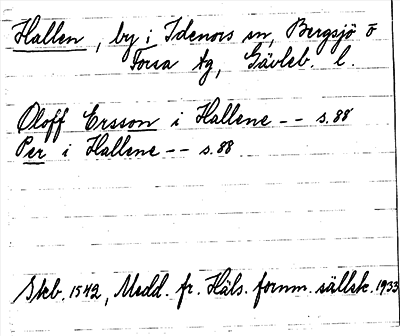 Hallen, by i Idenors sn, Bergsjö o
Forsa tg, Gävleb. l.
Oloff Ersson i Hallene -- s. 88
Per i Hallene -- s. 88
Skb. 1542, Medd. fr. Häls. fornm. sällsk. 1933